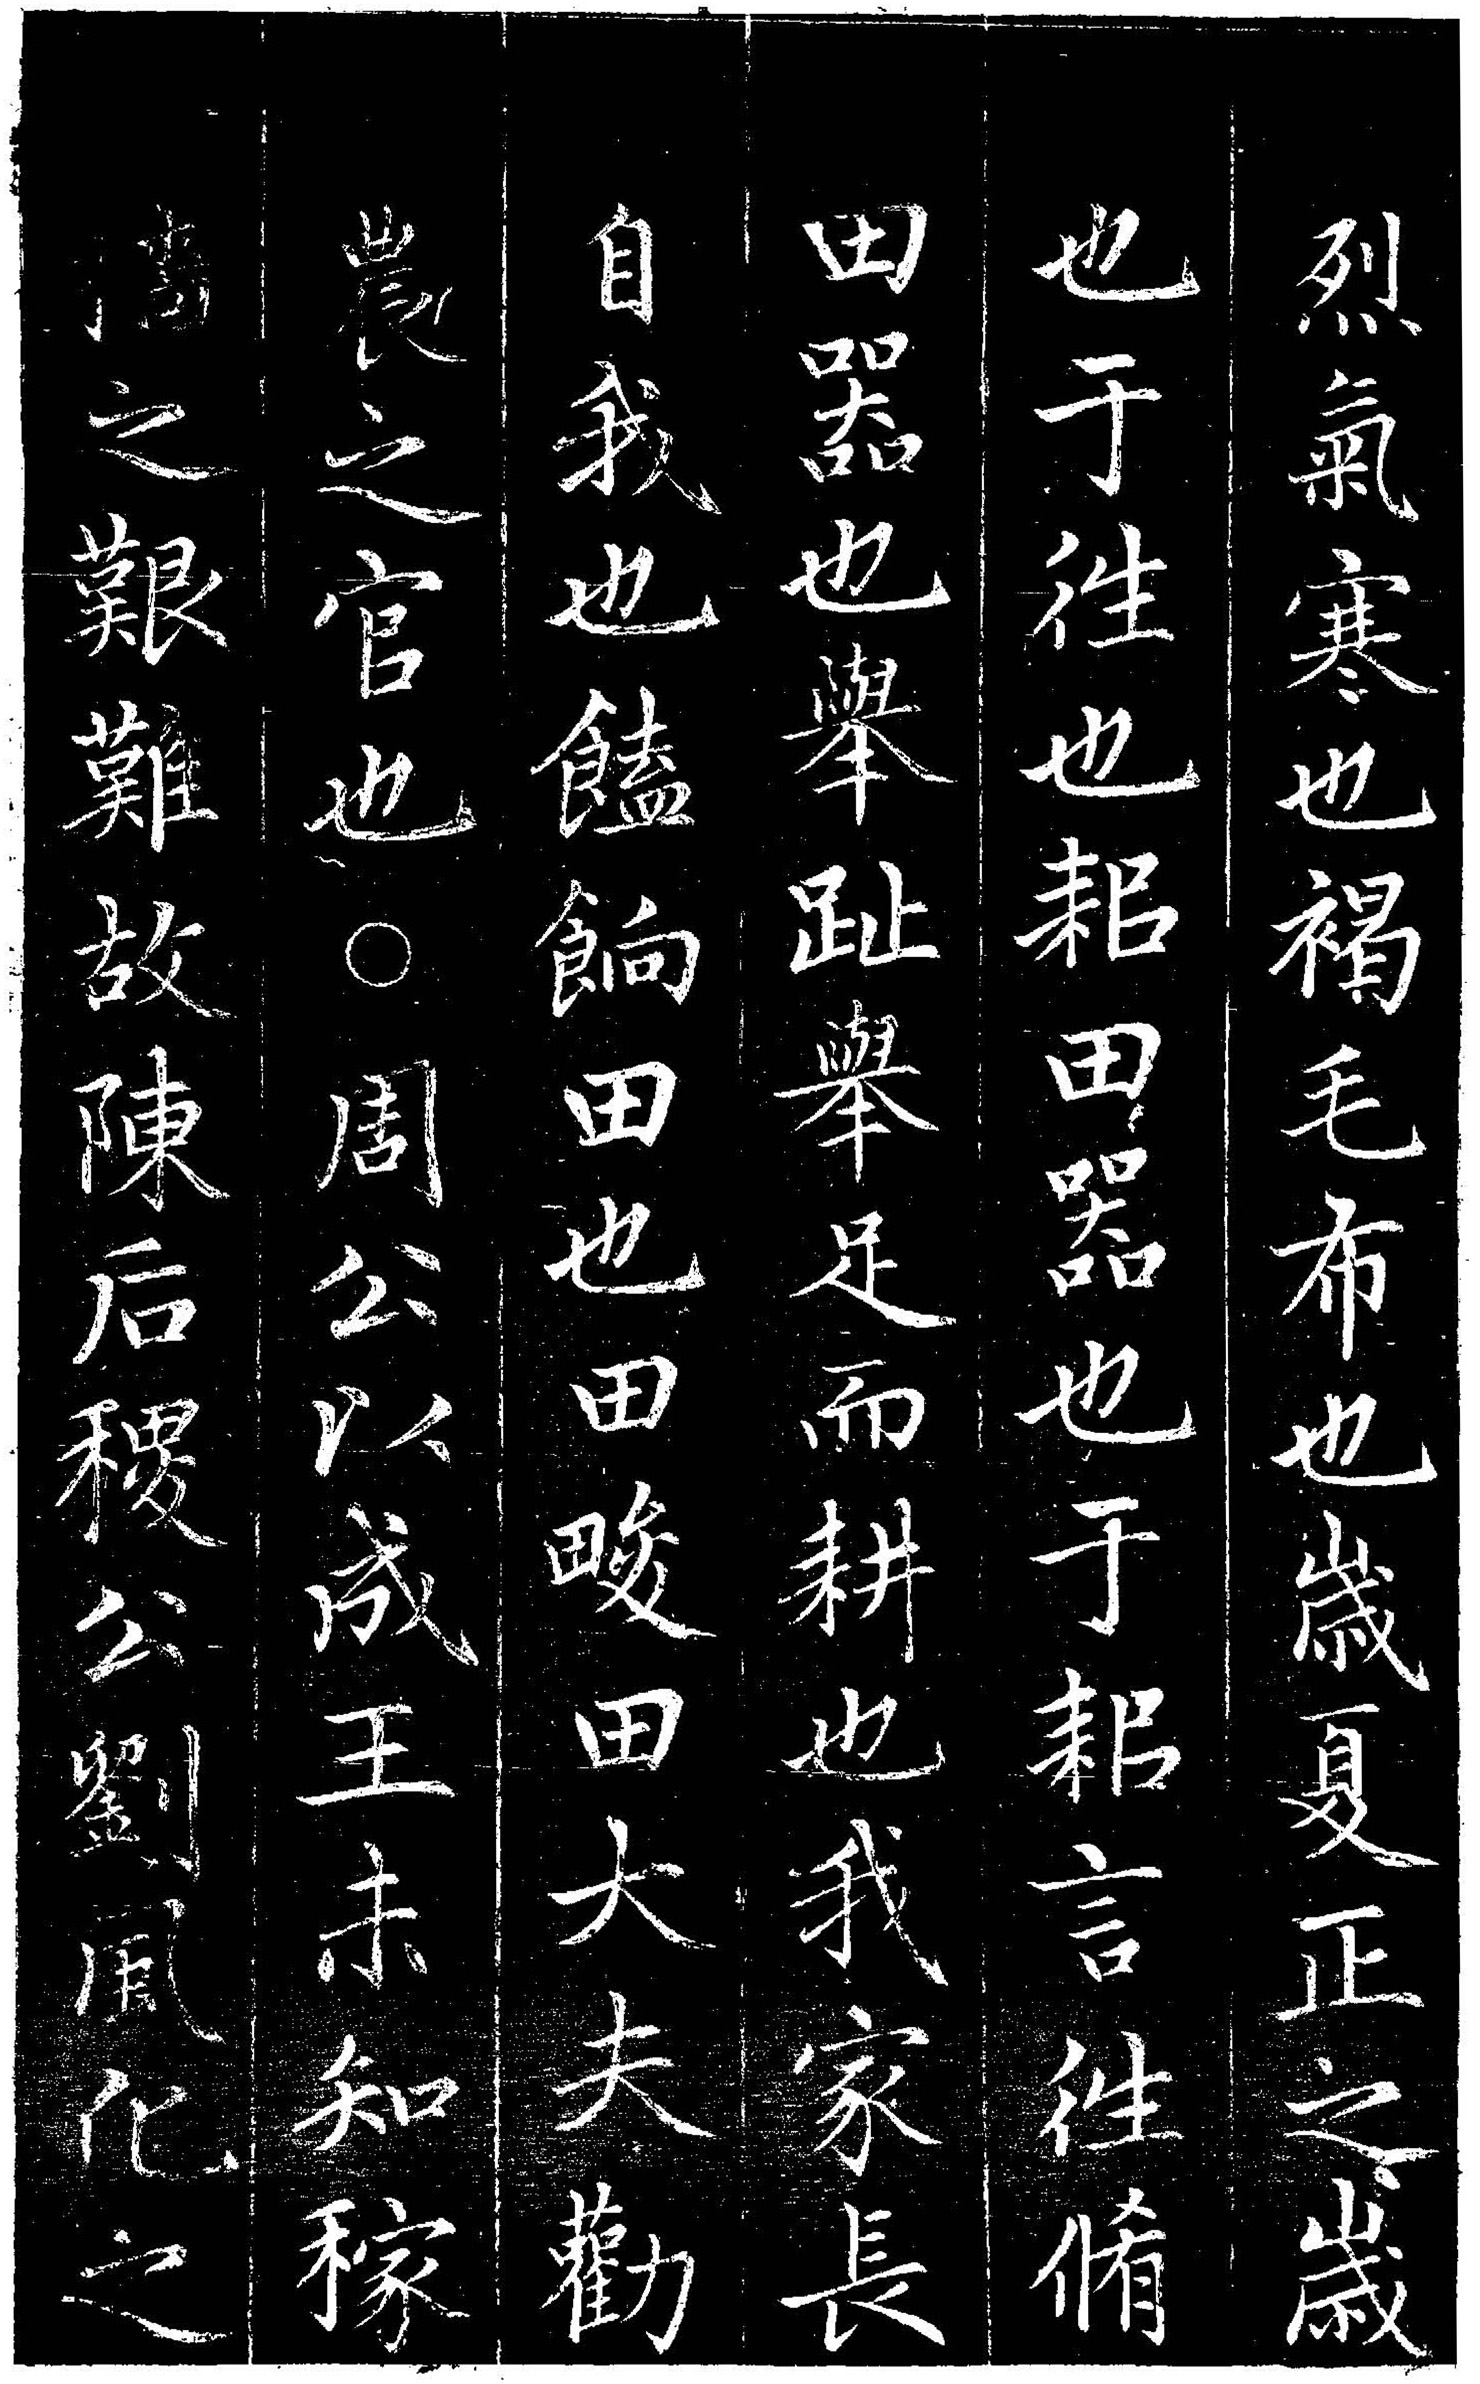 烈氣寒也褐毛布也歲夏正之歲
也于徃也耜田器也于耜言徃脩
田器也舉趾舉足而耕也我家長
自我也饁餉田也田畯田大夫勸
農之官也○周公以成王未知稼
穡之艱難故陳后稷公劉風化之